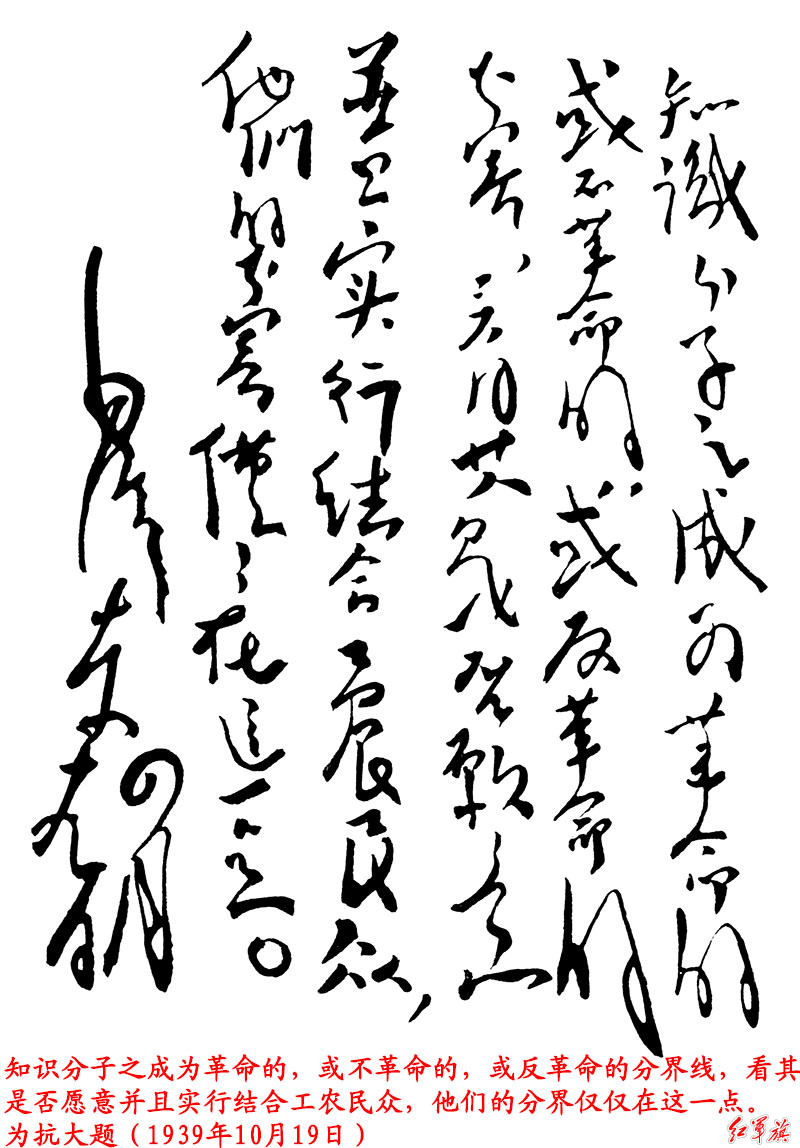 知識分子之成为革命的
或不革命的，或反革命的
分界，看其是否願意
並且实行結合工農民众，
他們的分界僅〻在這一点。
毛澤東
知识分子之成为革命的，或不革命的，或反革命的分界线，看其
是否愿意并且实行结合工农民众，他们的分界仅仅在这一点。
为抗大题（1939年10月19日）
红军旗